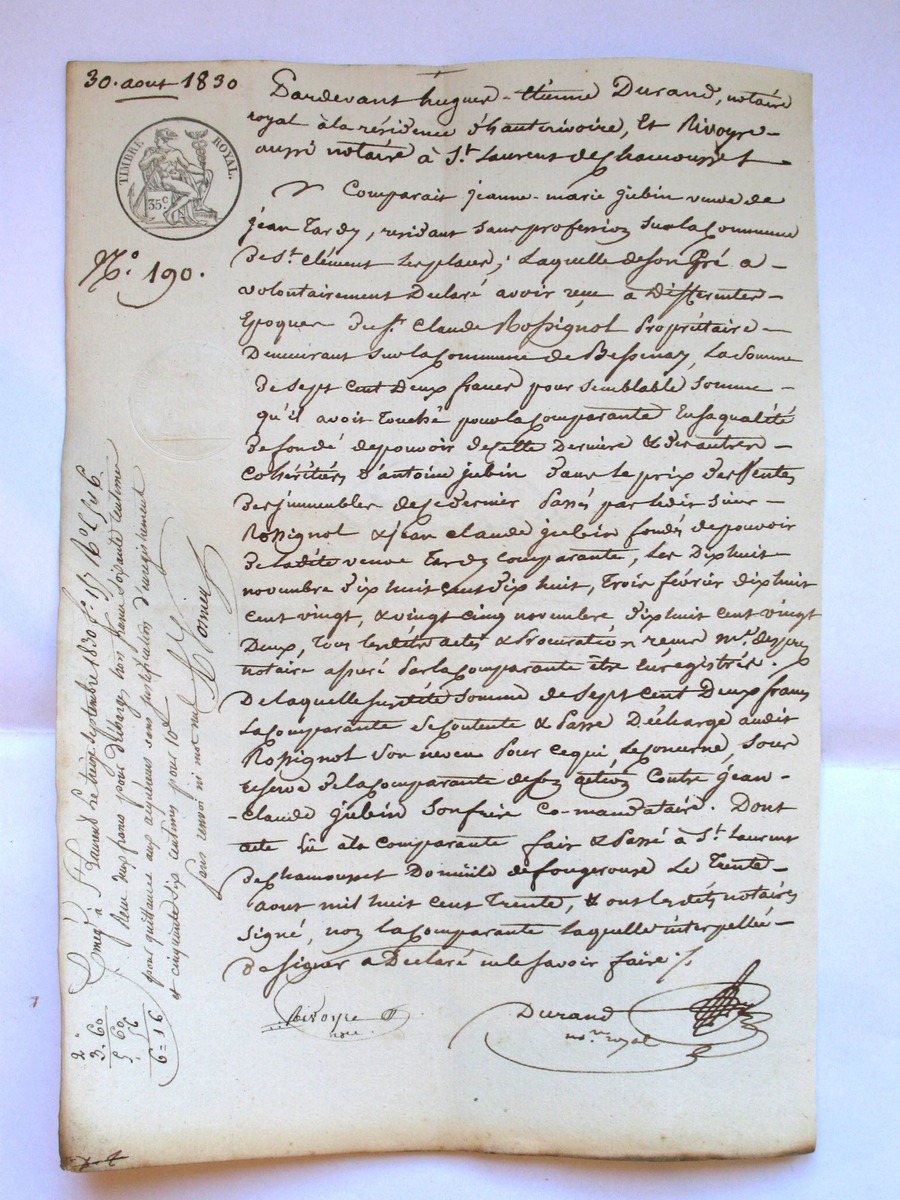 30. aout 1830
TIMBRE ROYAL.
35.c
N.o 190.
Pardevant hugues-Etienne Durand, notaire
royal à la résidence d'hauterivoire, Et Rivoyre
aussi notaire à St. Laurent de Chamousset
Comparait jeanne-marie jubin veuve de
jean Tardy, residant sans profession sur la Commune
de St. Clément les places; Laquelle de son Gré a
volontairement Déclaré avoir reçu a differentes
Epoques du Sr. Claude Rossignol Propriétaire
Demeurant sur la Commune de Bessenay, La somme
de sept cent Deux francs pour semblable somme
qu'il avoit touché pour la Comparante En sa qualité
de fondé de pouvoir de cette Derniere & des autres
Cohéritiers d'antoine jubin dans le prix des Ventes
des jmmeubles de ce dernier Passés par ledit sieur
Rossignol & jean Claude jubin fondés de pouvoir
de la dite veuve Tardy comparante, Les Dix huit
novembre dix huit cent dix huit, Trois février dix huit
cent vingt, & vingt cinq novembre dix huit cent vingt
Deux, Tous lesdits actes & Procuration reçus Me.
notaire assuré Par la Comparante être Enregistrés.
De laquelle susdite somme de sept cent Deux francs
La Comparante se Contente & Passe Décharge audit
Rossignol son neveu Pour ce qui le Concerne, sous
réserve de la Comparante de son action Contre jean-
-Claude jubin son frère co-mandataire. Dont
acte lu à la comparante fait & Passé à St. Laurent
de Chamousset Domicile de fougerouse Le Trente
aout mil huit cent Trente, & ont lesdits notaires
signé, non la Comparante laquelle interpellée
de signer a Déclaré ne le savoir faire ./.
Rivoyre
nre.
Durand
nore. royal
à St. Laurent le treize septembre 1830 f.o
Reçu deux francs pour décharge, trois francs soixante centimes
pour quittance aux acquéreurs sans justification d'enregistrement
et cinquante six centimes pour 10e
sans renvoi ni mot nul
2"
3. 60
5 60
56
6=16